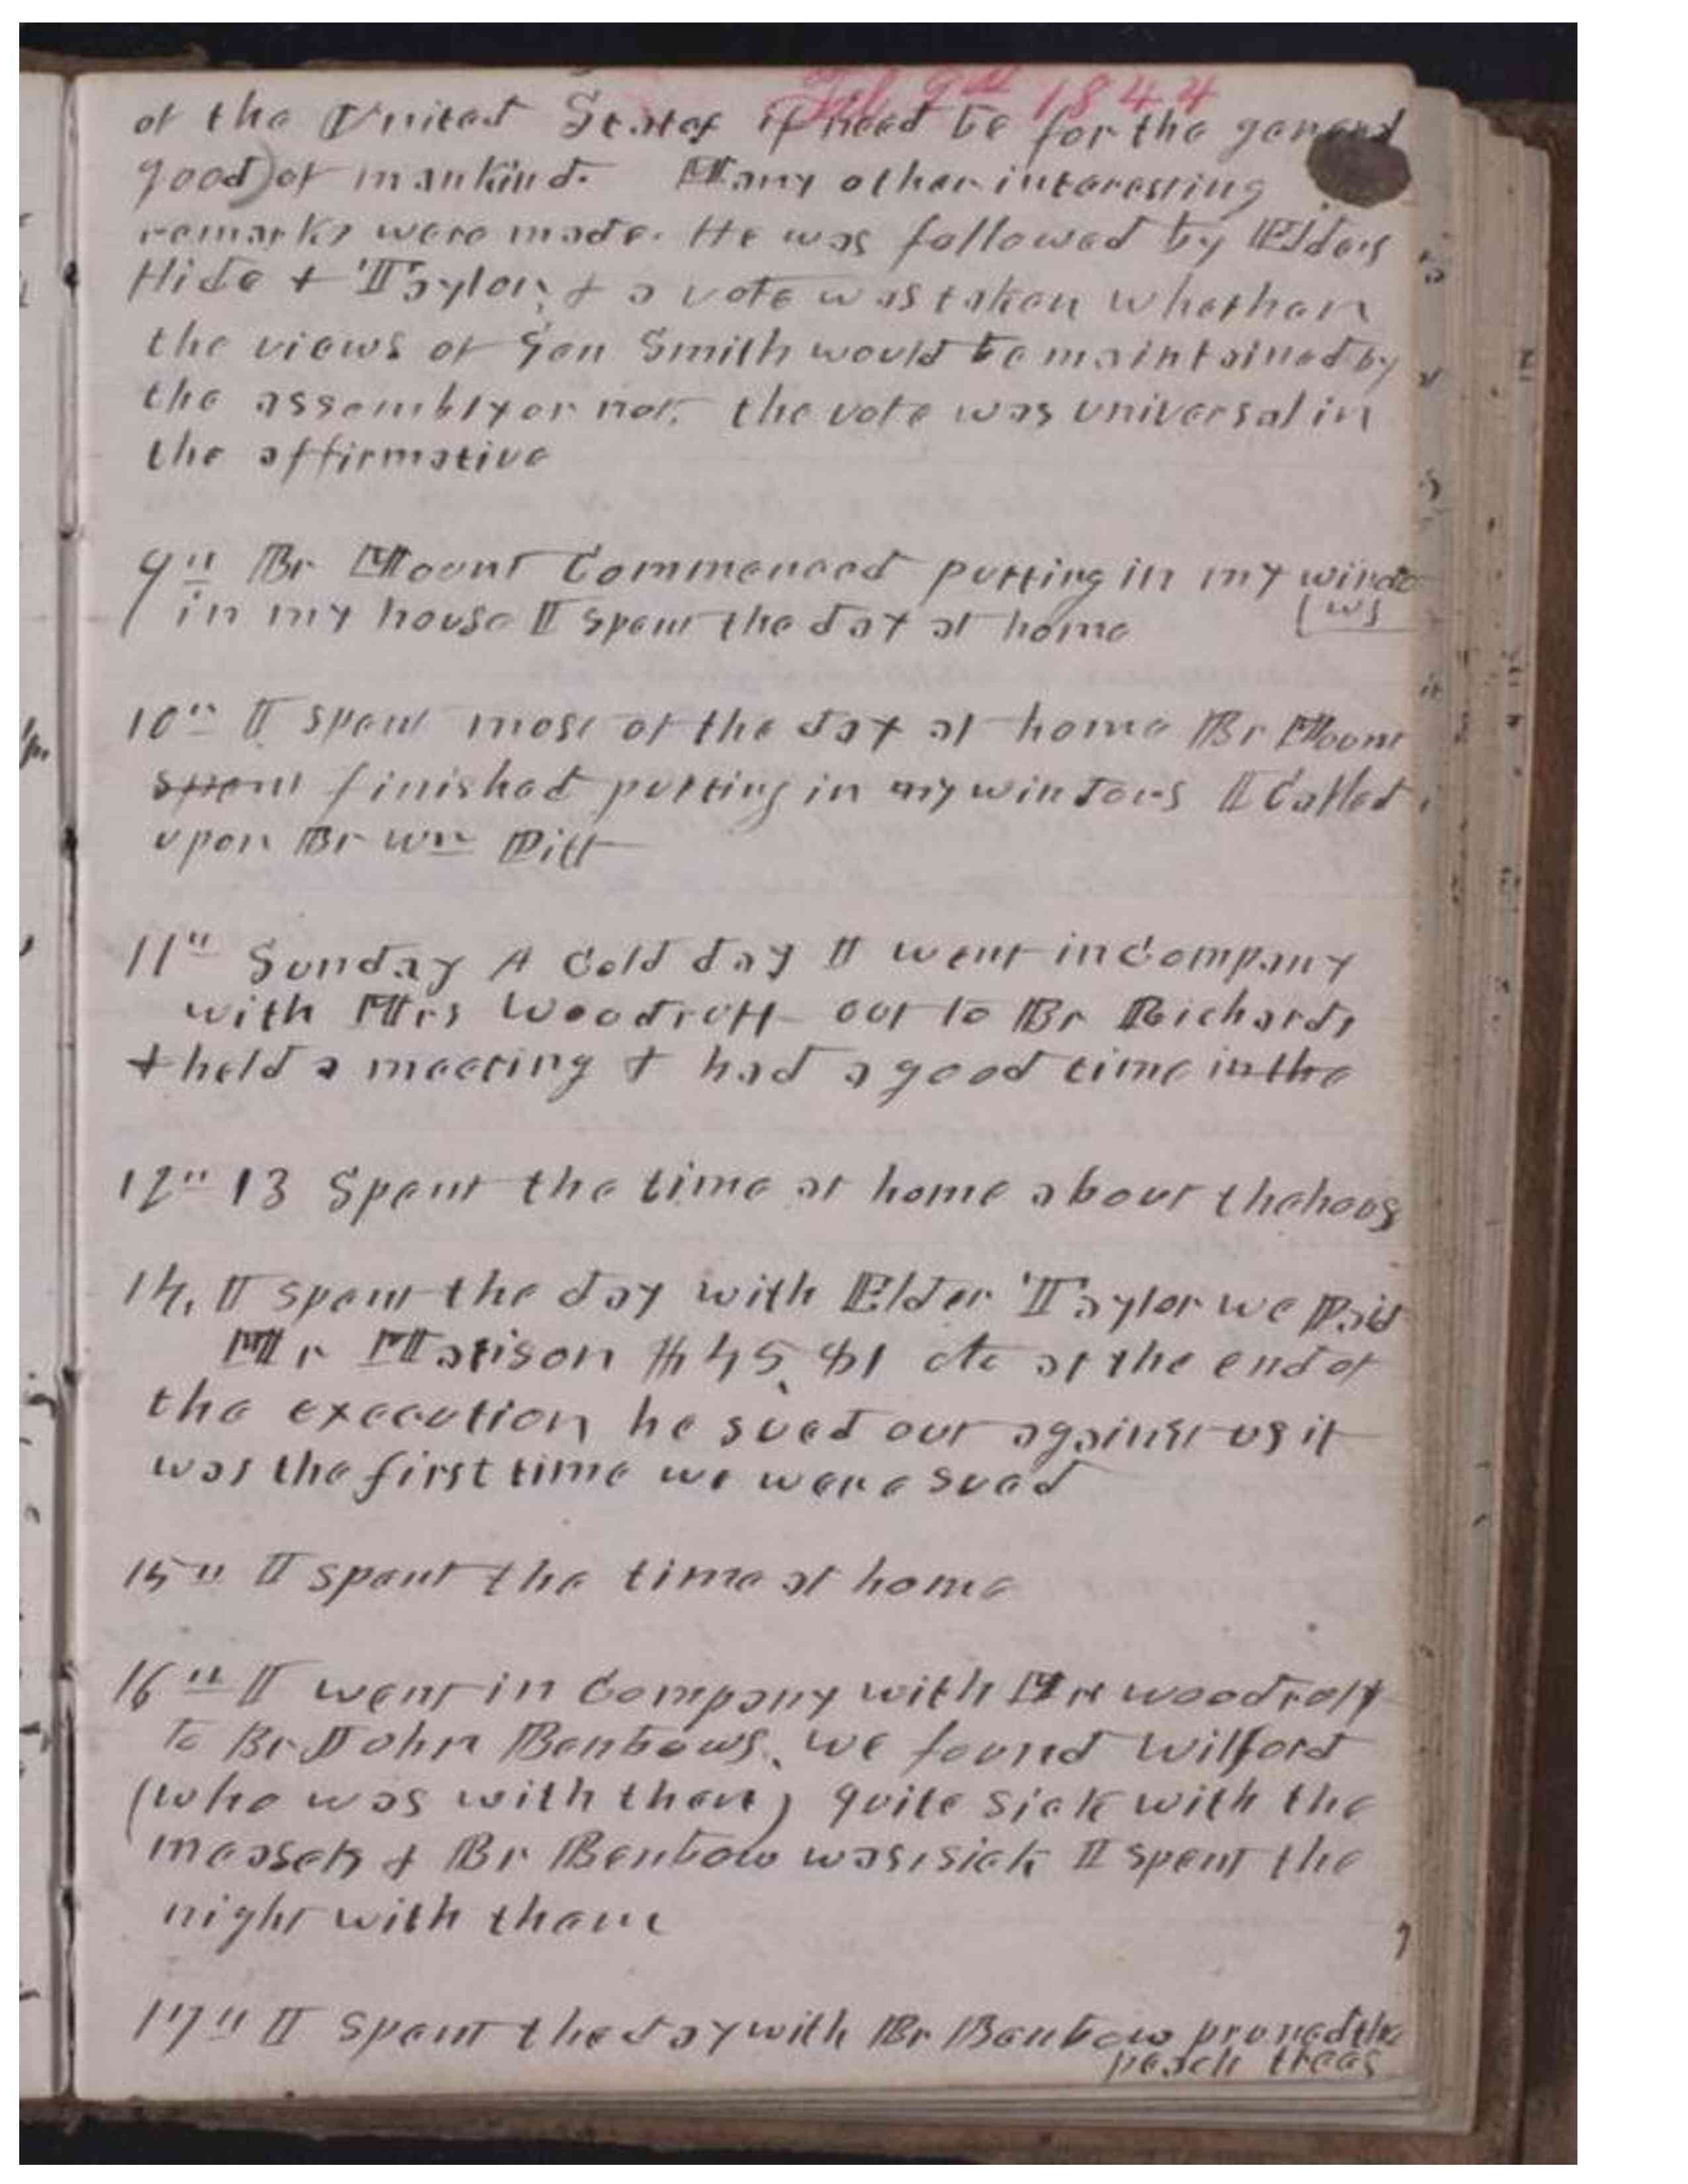 Feb 9th 1844
of the United States if need be for the general
good) of mankind. Many other interesting
remarks were made. He was followed by Elders
Hide & Taylor, & a vote was taken whether
the views of Gen Smith would be maintained by
the assembly or not. the vote was universal in
the affirmative
9th Br Mount Commenced putting in my windo
(ws
in my house I spent the day at home
10th I spent most of the day at home Br Mount
spent finished putting in my windows I Called
upon Br Wm Pitt
11th Sunday A Cold day I went in Company
with Mrs Woodruff out to Br Richards
& held a meeting & had a good time in the
12th 13 Spent the time at home about the hous
14, I spent the day with Elder Taylor we Paid
Mr Matison $45,81 cts at the end of
the execution he sued out against us it
was the first time we were sued
15th I spent the time at home
16th I went in Company with Mrs Woodruff
to Br John Benbows. we found Wilford
(who was with them) quite sick with the
measels & Br Benbow was sick I spent the
night with them
17th I spent the day with Br Benbow pruned the
peach trees